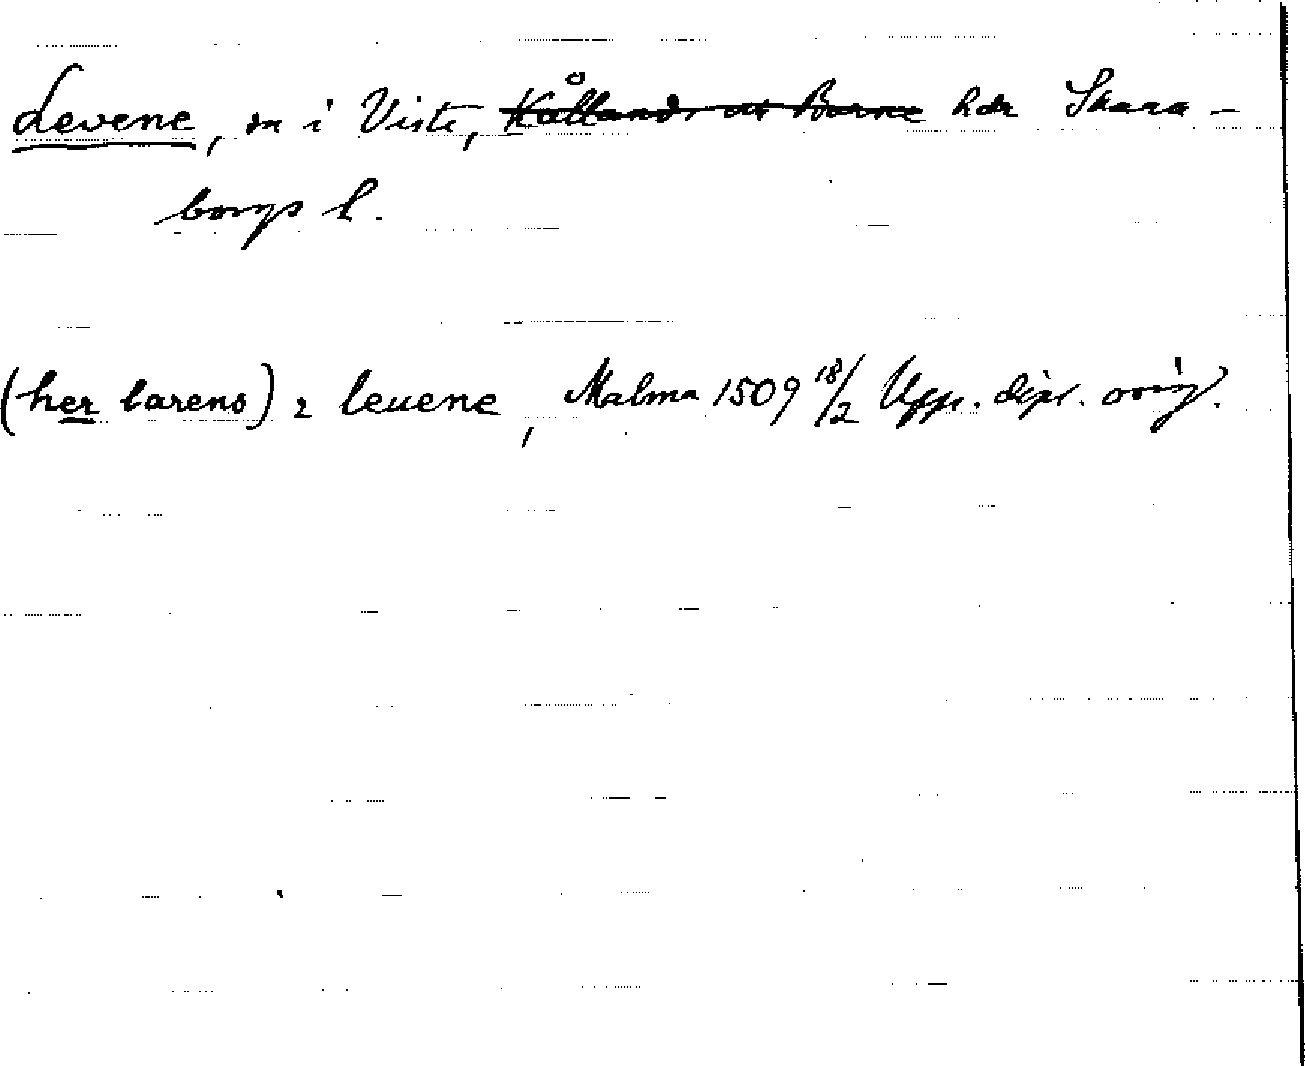 Levene, sn i Viste, Kållands ot Barne hdr Skara-
borgs l.
(her larens) i leuene, Malma 1509 18/2 Upps. dipl. orig.